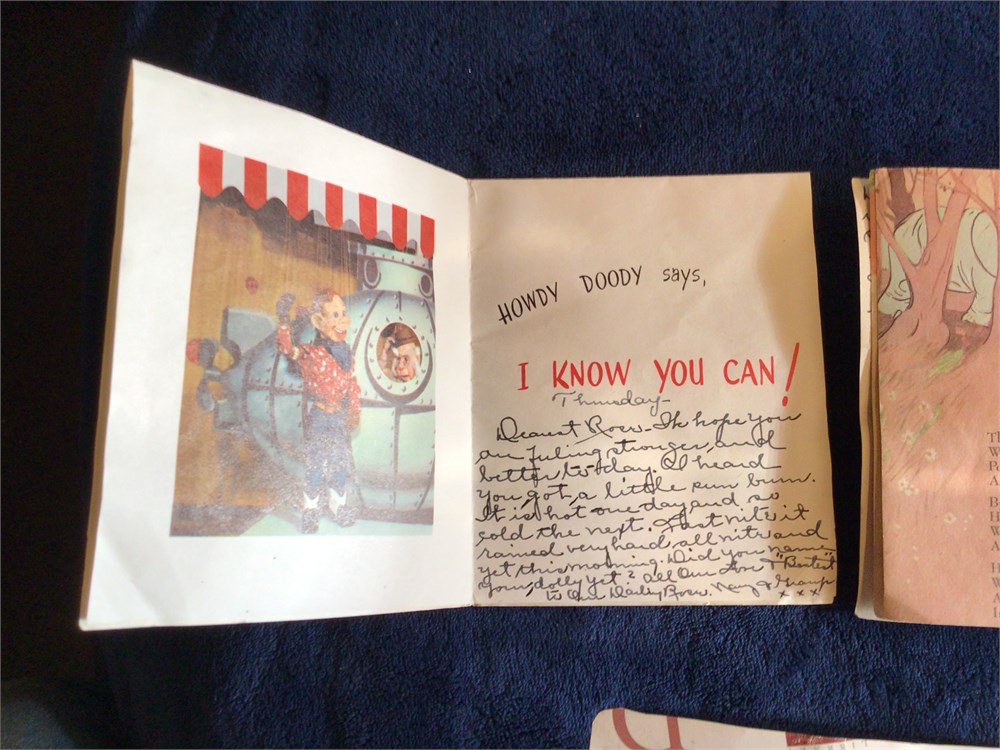 HOWDY DOODY says,
I KNOW YOU CAN!
Thursday-
Dearest Rose- I hope you
are feeling stronger, and
better to-day. I heard
you got a little sun burn.
It is hot one day and so
cold the next. Last nite it
rained very hard, all nite and
yet this morning. Did you name
your dolly yet? all Our Love & "Bestest"
to Our Darling Rose. Nany & Gramp
x x x
T
W
P
A
B
H
W
A
H
W
A